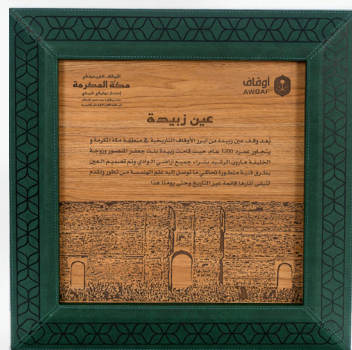 الأوقاف التاريخية في
مكة المكرمة
أوقاف
AWQAF
عين زبيدة
يعد وقف عين زبيدة من أبرز الأوقاف التاريخية في منطقة مكة المكرمة و
يتجاوز عمره 1200 عام، حيث قامت زبيدة بنت جعفر المنصور وزوجة
الخليفة هارون الرشيد بشراء جميع أراضي الوادي وتم تصميم العين
بطرق فنية متطورة تحاكي ما توصل إليه علم الهندسة من تطور وتقدم
لتبقى آثارها قائمة عبر التاريخ وحتى يومنا هذا